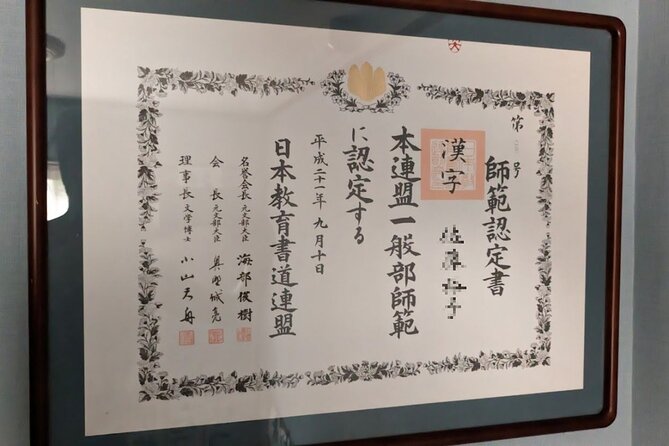 第 号
師範認定書
漢字
本連盟一般部師範
に認定する
平成二十一年九月十日
日本教育書道連盟
名誉会長 元文部大臣 海部俊樹
会長 元文部大臣 奥野誠亮
理事長 文学博士 小山天舟